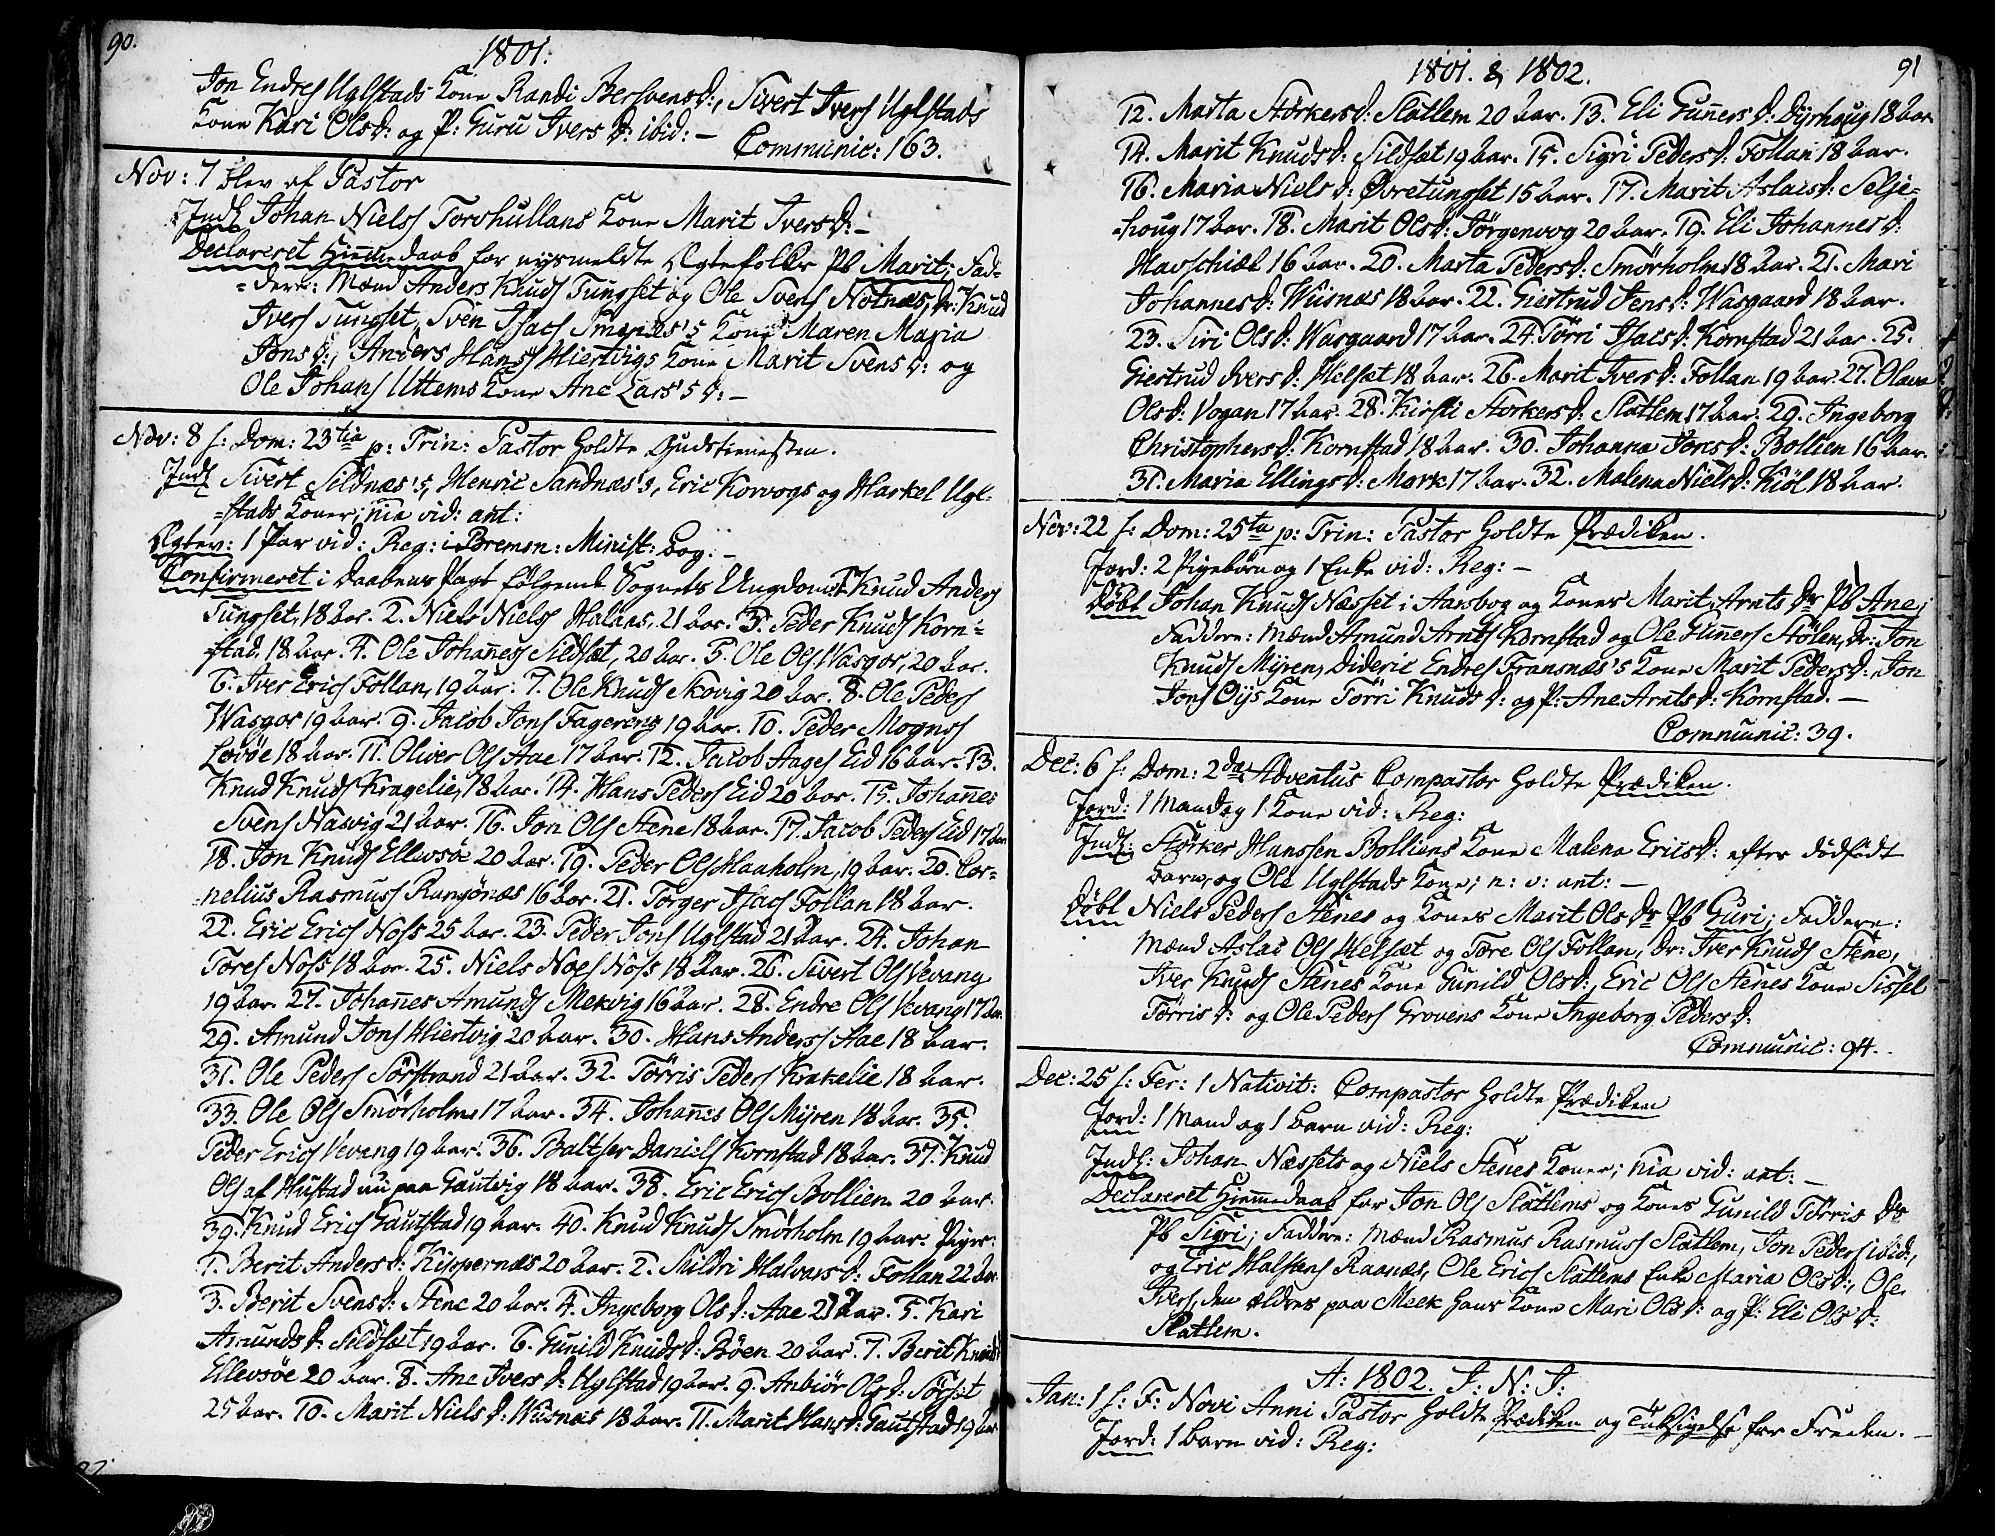 90.
1801.
Jon Endres Uglstads Kone Randi Bersvensd:, Sivert Ivers Uglstads
Kone Kari Olsd: og P: Guru Ivers d: ibid: —
Communic: 163.
Nov: 7 blev af Pastor
Indl. Johan Niels Torvhullans Kone Marit Iversd: —
Declareret Hiemedaab for nysmeldte Ægtefolks Pb Marit; Fad-
-dere: Mænd Anders Knuds Tungset og Ole Svens Notnæs, Dr: Knud
Ivers Tungset, Sven Isacs Smenes's Kone Maren Maria
Jonsd:, Anders Hans Hiertvigs Kone Marit Svens d: og
Ole Johans Uttems Kone Ane Lars's d: —
Nov: 8 f: Dom: 23tia p: Trin: Pastor holdte Gudstienesten.
Indl Sivert Sildnæs's, Henric Sandnæs's, Eric Korvogs og Harkel Ugl-
-stads Koner; nia vid: ant:
Ægtev: 1 Par vid: Reg: i Bremsn: Minist: bog: —
Confirmeret i Daabens Pagt følgende Sognets Ungdom: 1. Knud Anders
Tungset, 18 aar. 2. Niels Niels Halaas, 21 aar. 3. Peder Knuds Korn-
-stad 18 aar. 4. Ole Johanes Sildset, 20 aar. 5. Ole Ols Wasgor, 20 aar.
6. Iver Erics Follan, 19 aar. 7. Ole Knuds Skovig 20 aar. 8. Ole Peders
Wasgor 19 aar. 9. Jacob Jons Fagereng 19 aar. 10. Peder Mogns
Lovøe 18 aar. 11. Oliver Ols Aae 17 aar. 12. Jacob Aages Eid 16 aar. 13.
Knud Knuds Kragelie, 18 aar. 14. Hans Peders Eid 20 aar. 15. Johannes
Svens Naswig 21 aar. 16. Jon Ols Stene 18 aar. 17. Jacob Peders Eid 17 aar.
18. Jon Knuds Ellevsøe 20 aar. 19. Peder Ols Haaholm, 19 aar. 20. Cor-
-nelius Rasmuss Ramsönæs 16 aar. 21. Torger Isacs Follan 18 aar.
22. Eric Erics Noss 25 aar. 23. Peder Jons Uglstad 21 aar. 24. Johan
Tores Noss 18 aar. 25. Niels Noes Noss 18 aar. 26. Sivert Ols Vevang
19 aar. 27. Johannes Amunds Mekvig 16 aar. 28. Endre Ols Vevang 17 aar.
29. Amund Jons Hiertvig 20 aar. 30. Hans Anderss Aae 18 aar.
31. Ole Peders Sørstrand 21 aar. 32. Törris Peders Krakelie 18 aar.
33. Ole Ols Smörholm 17 aar. 34. Johannes Ols Myren 18 aar. 35.
Peder Erics Vevang 19 aar. 36. Baltser Daniels Kornstad 18 aar. 37. Knud
Ols af Hustad nu paa Gautvig 18 aar. 38. Eric Erics Bollien 20 aar.
39. Knud Erics Gautstad 19 aar. 40. Knud Knuds Smörholm 19 aar. Piger:
1. Berit Anders d: Kippernæs 20 aar. 2. Mildri Halvors d: Follan 22 aar.
3. Berit Svensd: Stene 20 aar. 4. Ingeborg Ols d: Aae 21 aar. 5. Kari
Amunds d: Sildset 19 aar. 6. Gunild Knudsd: Böen 20 aar. 7. Berit Knudsd:
Ellevsöe 20 aar. 8. Ane Ivers d: Uglstad 19 aar. 9. Anbiör Olsd: Sörset
25 aar. 10. Marit Niels d: Wisnæs 18 aar. 11. Marit Hansd: Gautstad 19 aar
1801. & 1802.
91
12. Marta Störkersd: Slatlem 20 aar. 13. Eli Guners d: Dyrhoug 18 aar
14. Marit Knudsd: Sildsæt 19 aar. 15. Sigri Pedersd: Follan 18 aar.
16. Maria Niels d: Øvretungset 15 aar. 17. Marit Aslacsd: Selje-
-houg 17 aar. 18. Marit Olsd: Jörgenvog 20 aar. 19. Eli Johannesd:
Havschiæl 16 aar. 20. Marta Pedersd: Smörholm 18 aar. 21. Mari
Johannesd: Wisnæs 18 aar. 22. Giertrud Jens d: Wasgaard 18 aar.
23. Siri Olsd: Wasgaard 17 aar. 24. Törri Isacsd: Kornstad 21 aar. 25.
Giertrud Ivers d: Helsæt 18 aar. 26. Marit Ivers d: Follan 19 aar. 27. Olava
Olsd: Vogan 17 aar. 28. Kirsti Störkersd: Slatlem 17 aar. 29. Ingeborg
Christophersd: Kornstad 18 aar. 30. Johanna Jensd: Bollien 16 aar.
31. Maria Ellingsd: Mark 17 aar. 32. Malena Nielsd: Kiöl 18 aar.
Nov: 22 f: Dom: 25ta p: Trin: Pastor holdte Prædiken.
Jord: 2 Pigebørn og 1 Enke vid: Reg: —
Döbt Johan Knuds Næsset i Aarsbog og Kones Marit Arnts dr Pb Ane;
Faddere: Mænd Amund Arnts Kornstad og Ole Guners Stölen, Dr: Jon
Knuds Myren, Dideric Endres Fransnæs's Kone Marit Pedersd: Jon
Jons Öijs Kone Törri Knuds d: og P: Ane Arntsd: Kornstad. —
Communic: 39.
Dec: 6 f: Dom: 2da Adventus Compastor holdte Prædiken.
Jord: 1 Mand og 1 Kone vid: Reg:
Indl: Störker Hanssen Bolliens Kone Malena Ericsd: efter dödfödt
barn, og Ole Uglstads Kone; n: v: ant: —
Döbt Niels Peders Stenes og Kones Marit Ols dr Pb Guri; Faddere:
Mænd Aslac Ols Helsæt og Tore Ols Follan, Dr: Iver Knuds Stene,
Iver Knuds Stenes Kone Gunild Olsd:, Eric Ols Stenes Kone Sissel
Törris d: og Ole Peders Grovens Kone Ingeborg Pedersd:
Communic: 94.
Dec: 25 f: Fer: 1 Nativit: Compastor holdte Prædiken
Jord: 1 Mand og 1 barn vid: Reg:
Indl: Johan Næssets og Niels Stenes Koner; nia vid: ant: —
Declareret Hiemedaab for Jon Ols Slatlems og Kones Gunild Törris dr
Pb Sigri; Faddere: Mænd Rasmus Rasmuss Slatlem, Jon Peders ibid:,
og Eric Halstens Raanæs, Ole Erics Slatlems Enke Maria Olsd:, Ole
Ivers, den ældres paa Meek hans Kone Mari Olsd: og P: Eli Olsd:
Slatlem.
A: 1802. I: N: I:
Jan: 1 f: F: Novi Anni Pastor holdte Prædiken og Taksigelse for Freden. —
Jord: 1 barn vid: Reg: